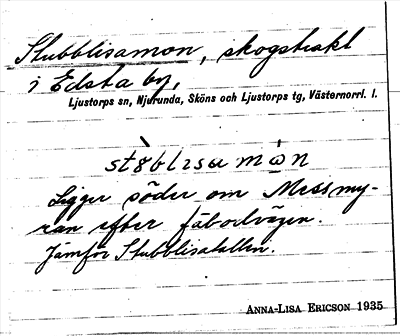 Stubblisamon, skogstrakt
i Edsta by,
Ljustorps sn, Njurunda, Sköns och Ljustorps tg, Västernorrl. l.
Ligger söder om Messmy-
ran efter fäbodvägen.
Jämför Stubblisatallen.
ANNA-LISA ERICSON 1935